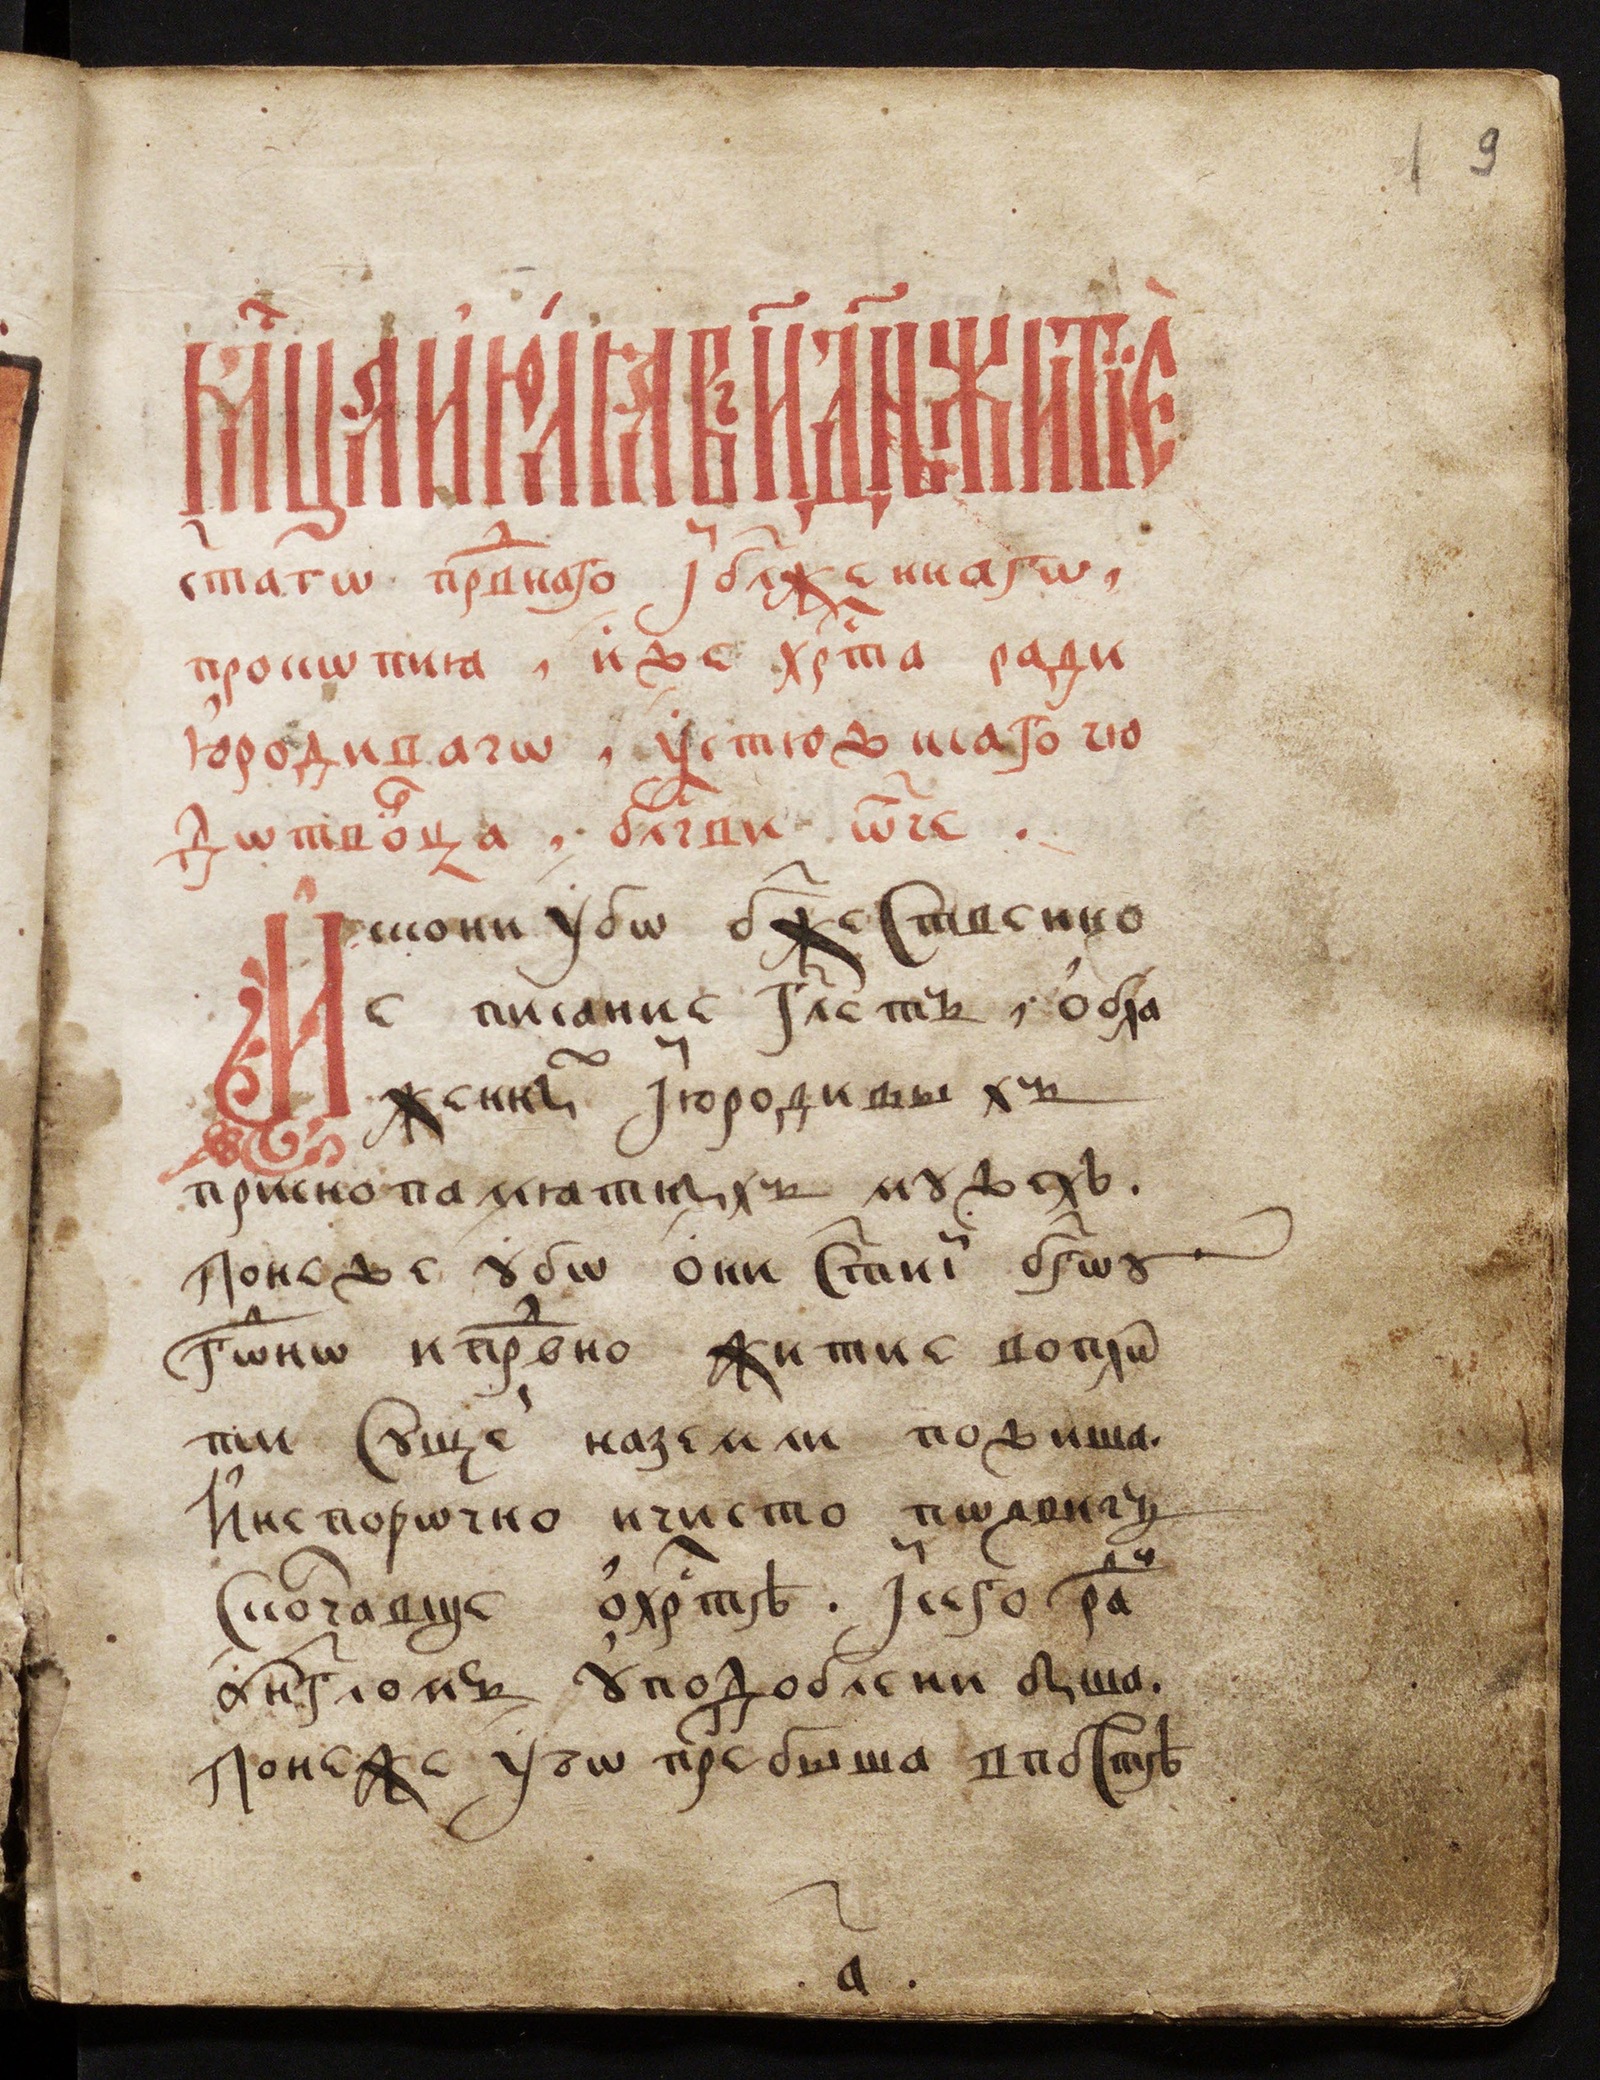 19
мц҃а июлѧ въ и҃ дн҃ь житїе
ст҃агѡ прⷣвнаго и҆ бл҃женнагѡ,
прокѡпиꙗ, иже хрⷭ҇та ради
юродивагѡ, ѹ҆стюжскаго чю
дѡтвоⷬ҇ца, блгⷭ҇ви ѿч҃е.
И҆скони ꙋ҆бѡ бжⷭ҇ественно
е писание гл҃етъ, о҆ бл҃а
женныⷯ и҆ юродивы хъ
приснопамꙗтныхъ мꙋжехъ.
Понеже ꙋбѡ ѻ҆ни ст҃ии бг҃ѡꙋ
гѡⷣнѡ и прⷣвно житие во плѡ
ти сꙋще на земли пожиша.
И҆ непорѡчно и чисто пѡдвигъ
скончавше ѡ҆ хрⷭ҇тѣ. и҆ сего раⷣ
а҆нг҃ломъ ꙋ҆подоблени быша.
Понеже ꙋ҆бѡ пребыша в постѣ
. а .